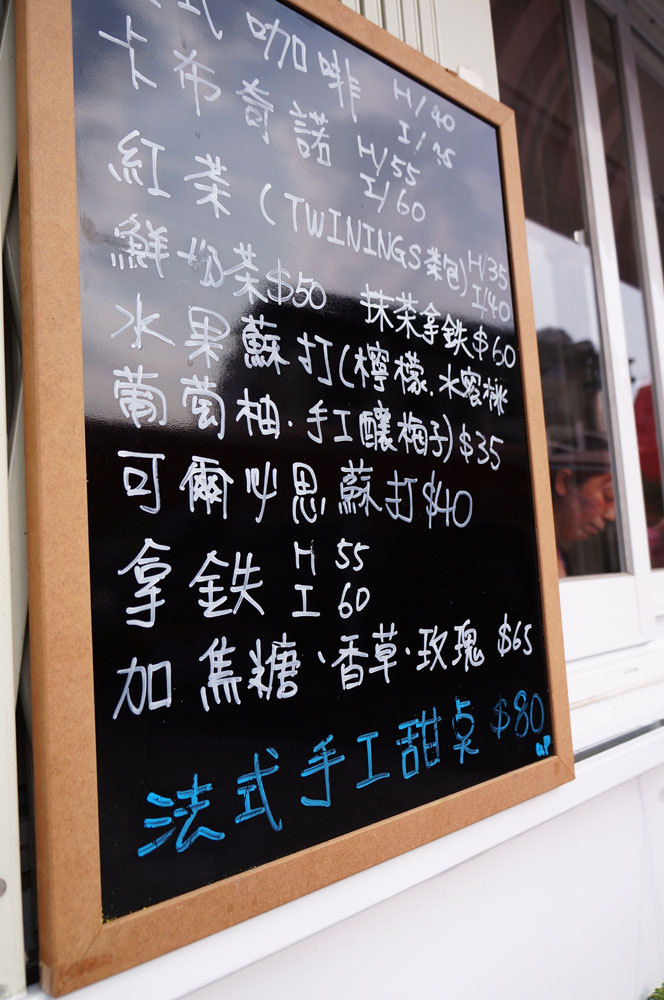 式咖啡 H/40
I/35
卡布奇諾 H/55
I/60
紅茶(TWININGS茶包) H/35
I/40
鮮奶茶$50 抹茶拿鉄$60
水果蘇打(檸檬.水蜜桃
葡萄柚.手工釀梅子)$35
可爾必思蘇打$40
拿鉄 H 55
I 60
加焦糖、香草.玫瑰 $65
法式手工甜点 $80
up